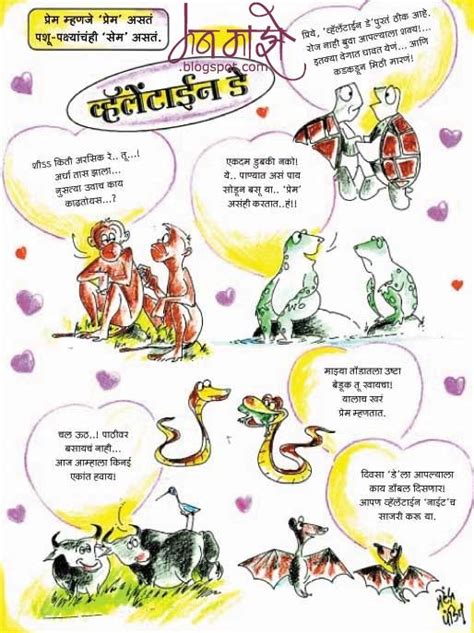 प्रेम म्हणजे 'प्रेम' असतं
पशू-पक्ष्यांचंही 'सेम' असतं.
मन माझे
.blogspot.com
व्हॅलेंटाईन डे
प्रिये, 'व्हॅलेंटाईन डे'पुरतं ठीक आहे.
रोज नाही बुवा आपल्याला शक्य!...
इतक्या वेगात धावत येणं... आणि
कडकडून मिठी मारणं!
शीSS किती अरसिक रे.. तू...!
अर्धा तास झाला...
नुसत्या उवाच काय
काढतोयस...?
एकदम डुबकी नको!
ये.. पाण्यात असं पाय
सोडून बसू या.. 'प्रेम'
असंही करतात..हं!!
माझ्या तोंडातला उष्टा
बेडूक तू खायचा!
यालाच खरं
प्रेम म्हणतात.
चल ऊठ..! पाठीवर
बसायचं नाही...
आज आम्हाला किनई
एकांत हवाय!
दिवसा 'डे'ला आपल्याला
काय डोंबल दिसणार!
आपण व्हॅलेंटाईन 'नाईट'च
साजरी करू या.